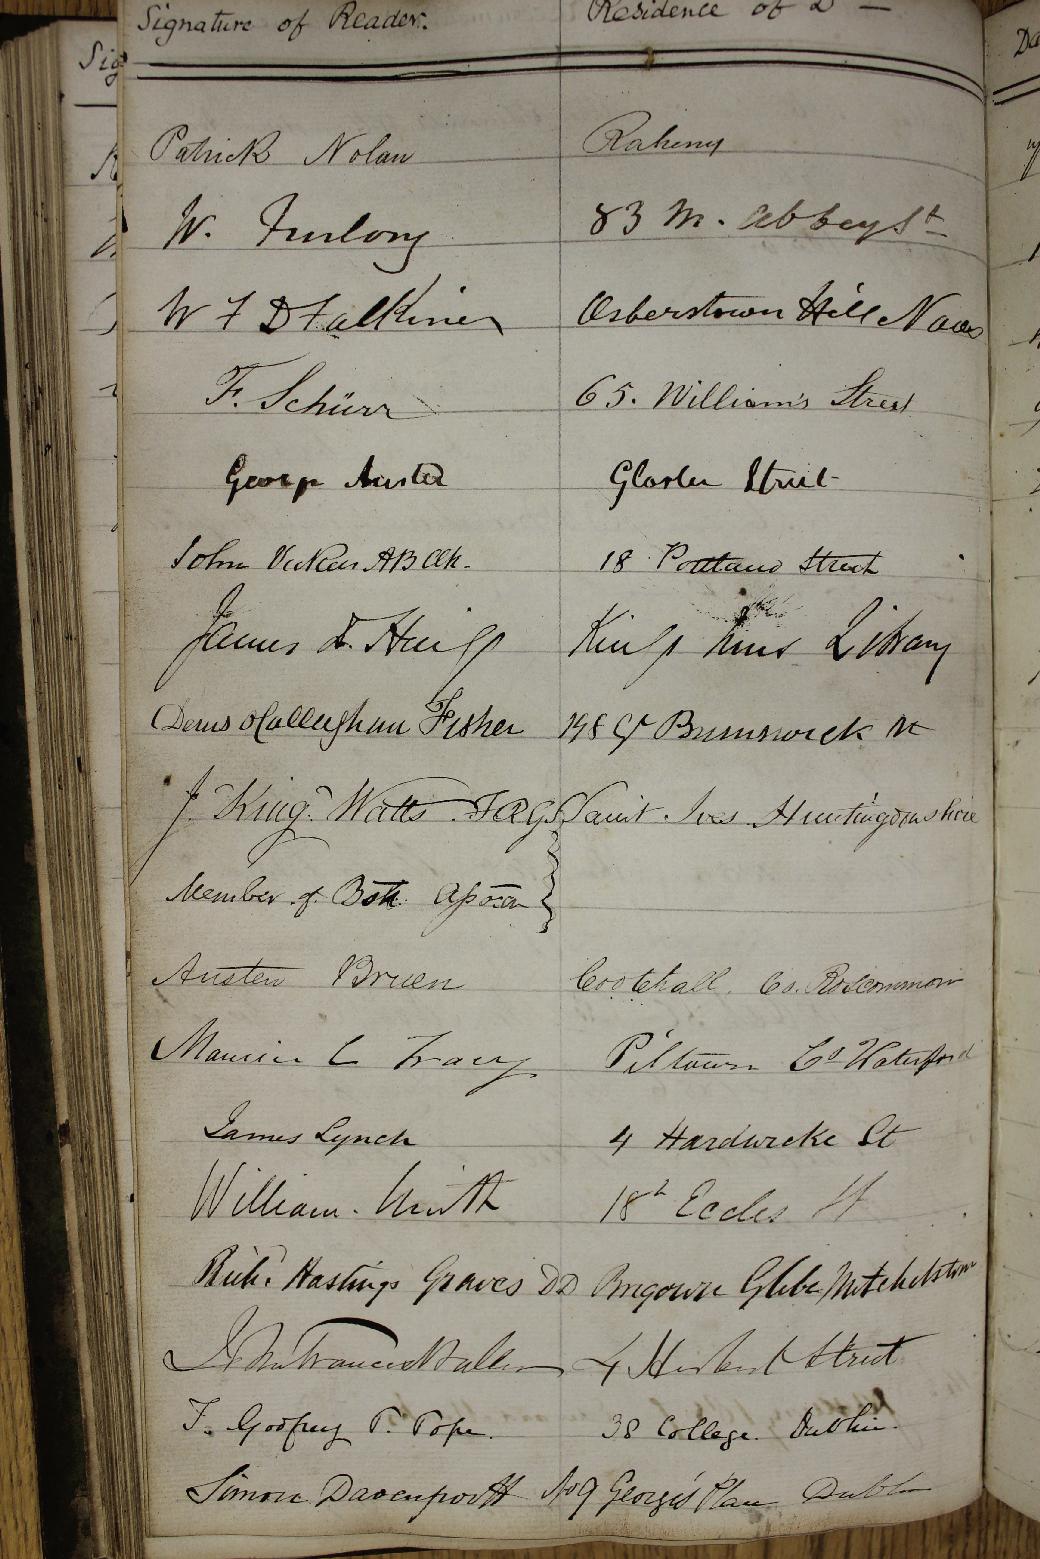 Signature of Reader. Residence of D
Patrick Nolan Raheny
W. Furlong 83 M. Abbey St
W F D Falkiner Osberstown Hill Naas
F. Schürr 65. William's Street
George Gloster Street
John Vickers AB 18 Portland Street
James D. Haig Kings Inns Library
Denis O'Callaghan Fisher 148 Gt Brunswick St
J. King Watts F.R.G.S Saint Ives Huntingdonshire
Member of Btsh Assocn
Austen Bruen Cootehall. Co. Roscommon
Maurice C Tracy Piltown Co Waterford
James Lynch 4 Hardwicke St
William Smith 18 Eccles St
Richd Hastings Graves DD Brigown Glebe Mitchelstown
John Francis Waller 4 Herbert Street
T. Godfrey P. Pope. 38 College. Dublin.
Simon Davenport No 9 George's Place Dublin